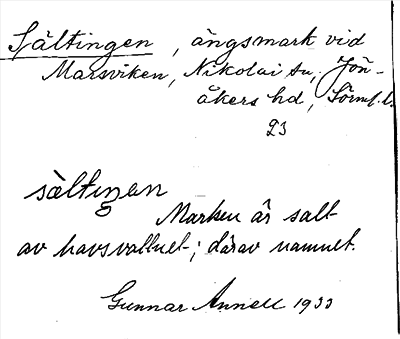 Sältingen, ängsmark vid
Marsviken, Nikolai sn, Jön-
åkers hd, Sörml. l.
23
sältiŋen
Marken är salt
av havsvattnet; därav namnet.
Gunnar Annell 1933